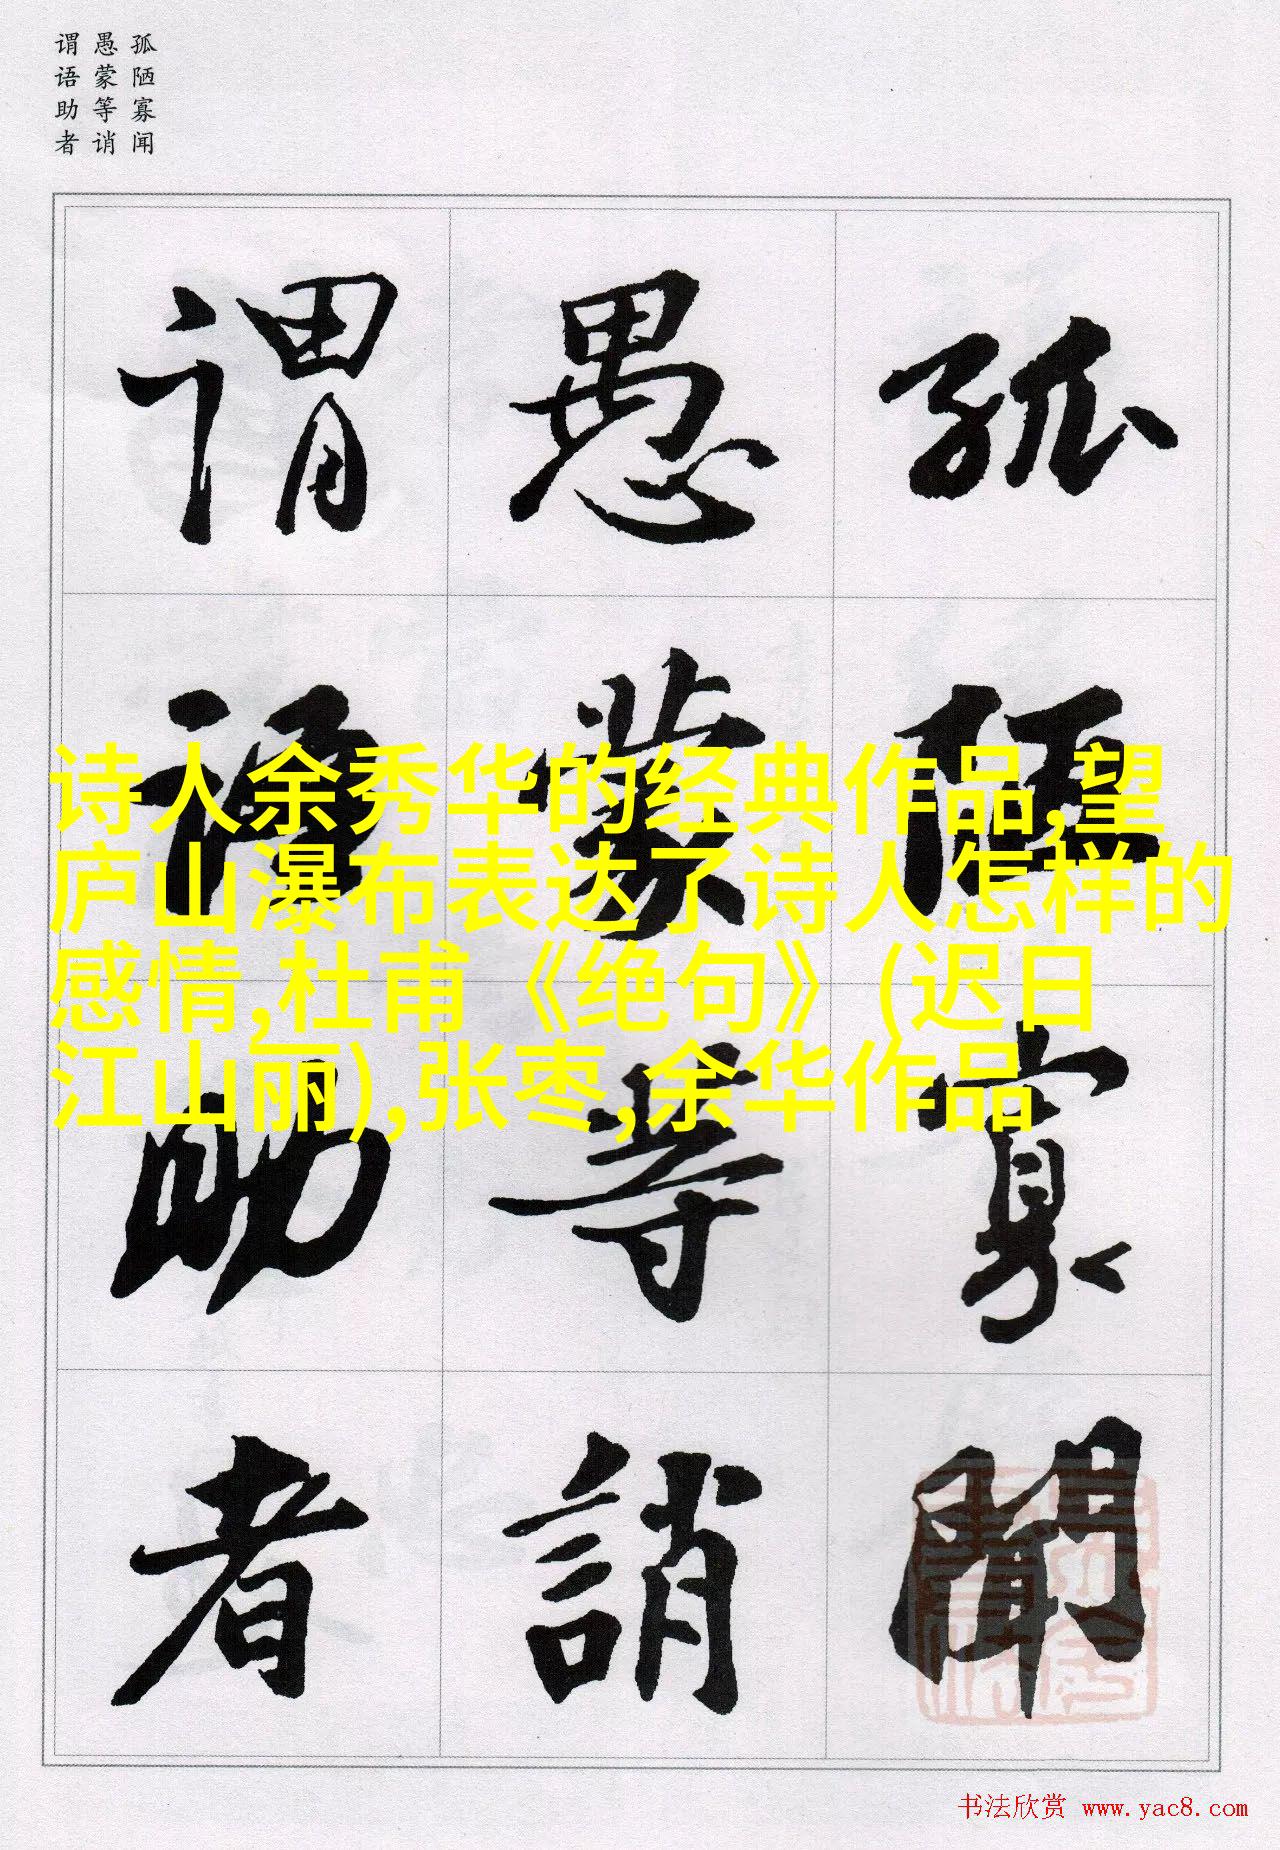 孤陋寡闻
愚蒙等诮
谓语助者
孤陋寡聞
愚蒙等誚
谓语助者
诗人余秀华的经典作品,望
庐山瀑布表达了诗人怎样的
感情,杜甫《绝句》(迟日
江山丽),张枣,余华作品
书法欣赏 www.yac8.com